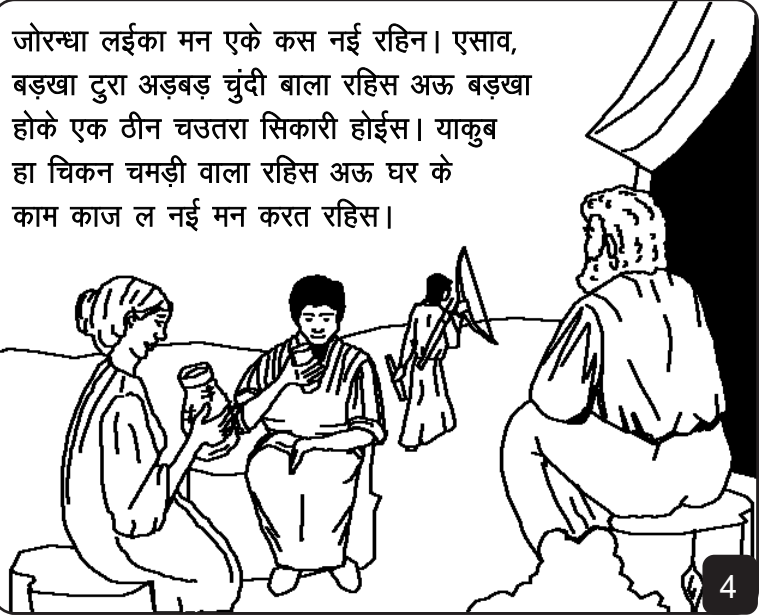 जोरन्धा लईका मन एके कस नई रहिन। एसाव,
बड़खा टुरा अड़बड़ चुंदी बाला रहिस अऊ बड़खा
होके एक ठीन चउतरा सिकारी होईस। याकुब
हा चिकन चमड़ी वाला रहिस अऊ घर के
काम काज ल नई मन करत रहिस।
4